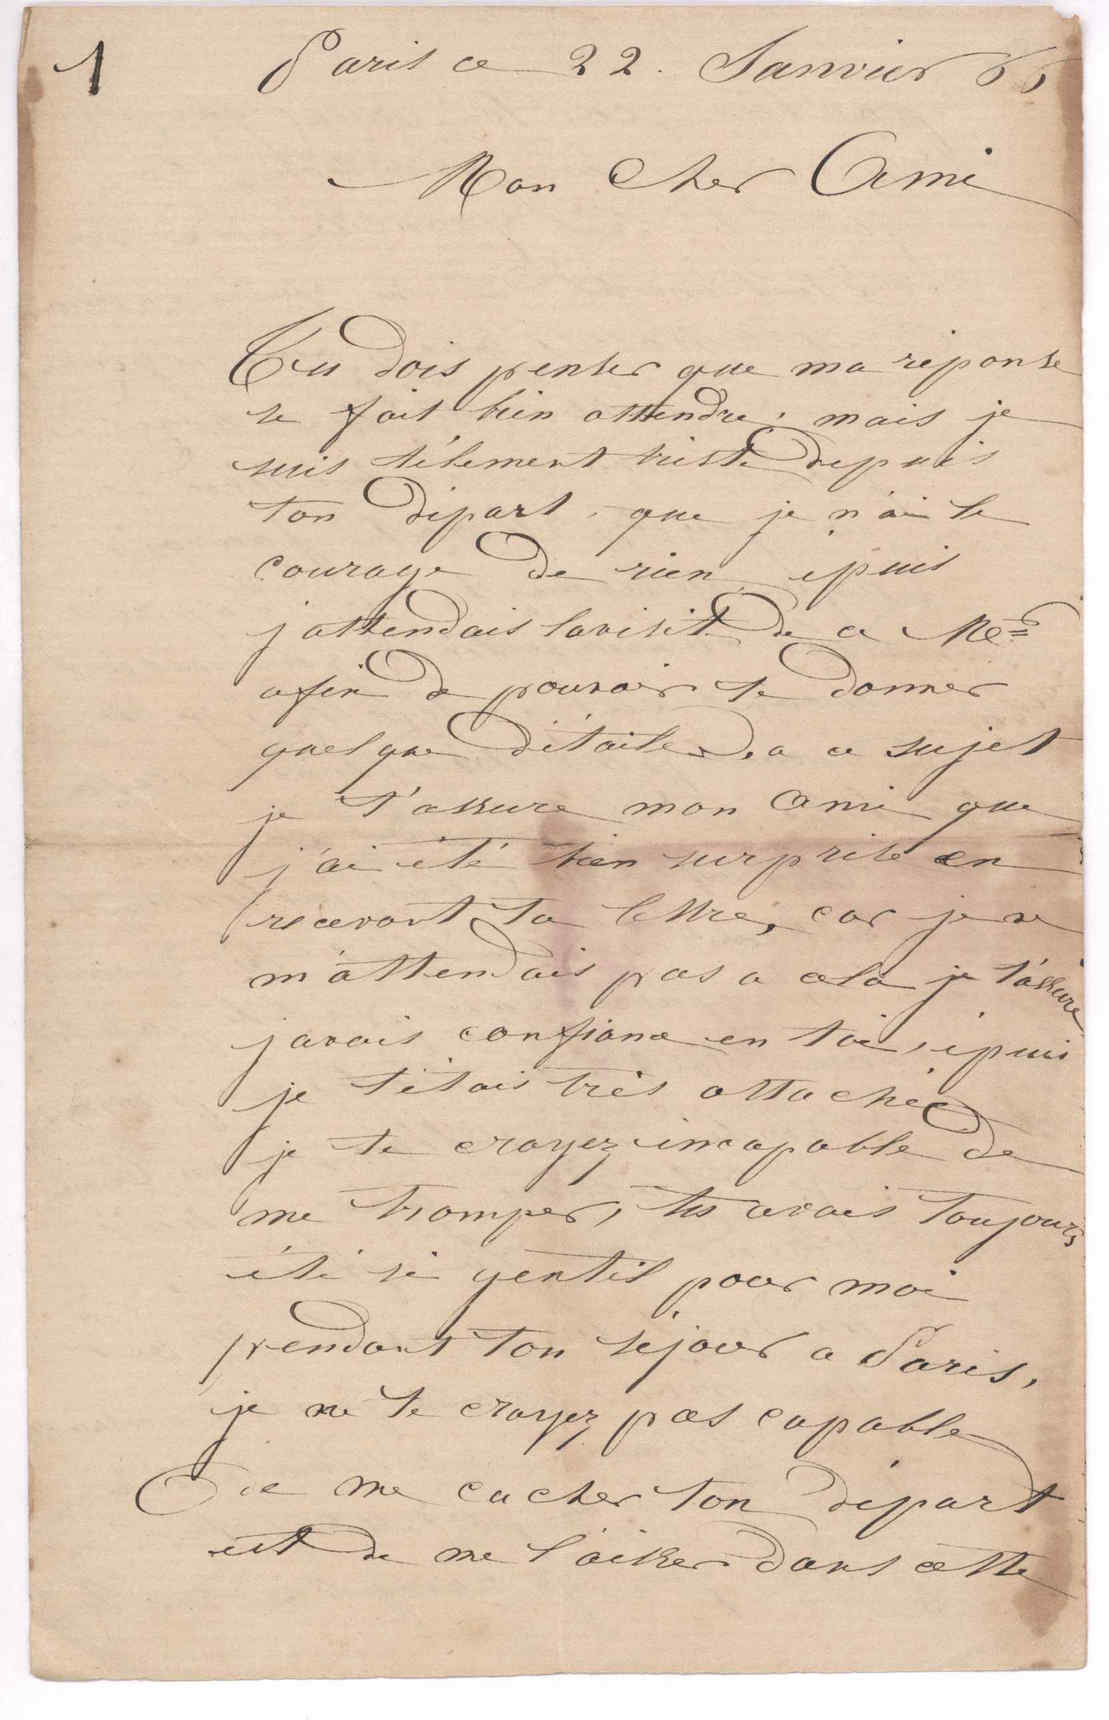 1 Paris ce 22. Janvier 66
Mon Cher Ami
Tu dois penser que ma réponse
se fait bien attendre, mais je
suis télement triste depuis
ton départ, que je n'ai le
courage de rien, epuis
j attendais lavisite de ce Mr
afin de pouvoir te donner
quelque détailes, a ce sujet
je t'assure mon Ami que
j'ai été bien surprise en
recevant ta lettre, car je ne
m'attendais pas a cela je t'assure
javais confiance en toi, epuis
je t'étais très attachée
je te croyez incapable de
me tromper, tu avais toujours
été si gentil pour moi
pendant ton séjour a Paris,
je ne te croyez pas capable
de me cacher ton départ
et de me l'aisser dans cette